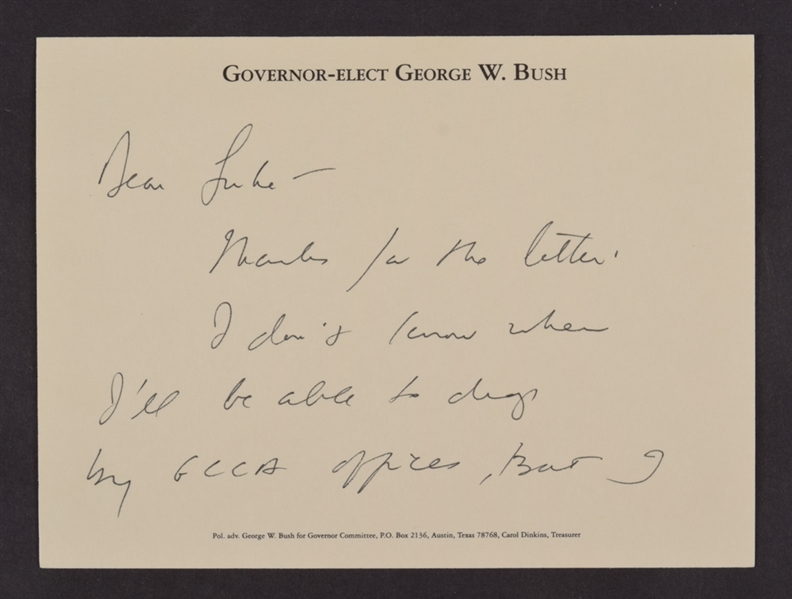 GOVERNOR-ELECT GEORGE W. BUSH
Dear Luke—
Thanks for the letter.
I don't know when
I'll be able to drop
by GCCA offices, But I
Pol. adv. George W. Bush for Governor Committee, P.O. Box 2136, Austin, Texas 78768, Carol Dinkins, Treasurer